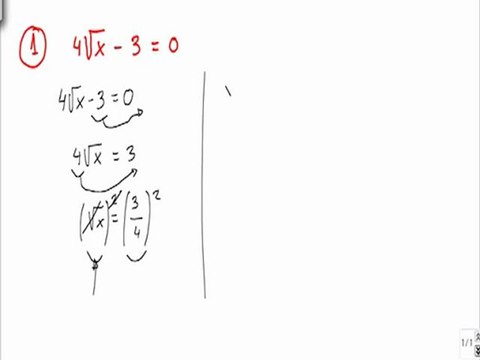 1 4√x - 3 = 0
4√x - 3 = 0
4√x = 3
(√x)² = (3/4)²
1/1